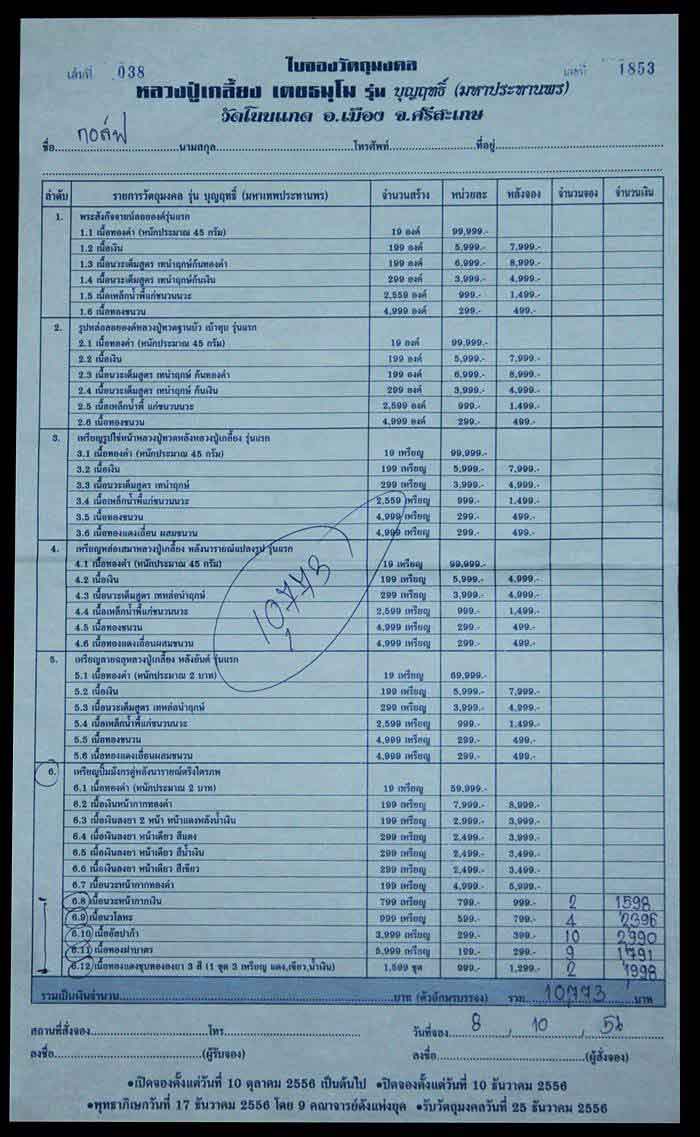 ใบจองวัตถุมงคล
เล่มที่ 038 เลขที่ 1853
หลวงปู่เกลี้ยง เตชธมฺโม รุ่น บุญฤทธิ์ (มหาประทานพร)
วัดโนนแกด อ.เมือง จ.ศรีสะเกษ
ชื่อ กอล์ฟ นามสกุล โทรศัพท์ ที่อยู่
ลำดับ รายการวัตถุมงคล รุ่น บุญฤทธิ์ (มหาเทพประทานพร) จำนวนสร้าง หน่วยละ หลังจอง จำนวนจอง จำนวนเงิน
1. พระสังกัจจายน์ลอยองค์รุ่นแรก
1.1 เนื้อทองคำ (หนักประมาณ 45 กรัม) 19 องค์ 99,999.-
1.2 เนื้อเงิน 199 องค์ 5,999.- 7,999.-
1.3 เนื้อนวะเต็มสูตร เทนำฤกษ์ก้นทองคำ 199 องค์ 6,999.- 8,999.-
1.4 เนื้อนวะเต็มสูตร เทนำฤกษ์ก้นเงิน 299 องค์ 3,999.- 4,999.-
1.5 เนื้อเหล็กน้ำพี้แก่ชนวนนวะ 2,559 องค์ 999.- 1,499.-
1.6 เนื้อทองชนวน 4,999 องค์ 299.- 499.-
2. รูปหล่อลอยองค์หลวงปู่ทวดฐานบัว เบ้าทุบ รุ่นแรก
2.1 เนื้อทองคำ (หนักประมาณ 45 กรัม) 19 องค์ 99,999.-
2.2 เนื้อเงิน 199 องค์ 5,999.- 7,999.-
2.3 เนื้อนวะเต็มสูตร เทนำฤกษ์ ก้นทองคำ 199 องค์ 6,999.- 8,999.-
2.4 เนื้อนวะเต็มสูตร เทนำฤกษ์ ก้นเงิน 299 องค์ 3,999.- 4,999.-
2.5 เนื้อเหล็กน้ำพี้ แก่ชนวนนวะ 2,599 องค์ 999.- 1,499.-
2.6 เนื้อทองชนวน 4,999 องค์ 299.- 499.-
3. เหรียญรูปไข่หน้าหลวงปู่ทวดหลังหลวงปู่เกลี้ยง รุ่นแรก
3.1 เนื้อทองคำ (หนักประมาณ 45 กรัม) 19 เหรียญ 99,999.-
3.2 เนื้อเงิน 199 เหรียญ 5,999.- 7,999.-
3.3 เนื้อนวะเต็มสูตร เทนำฤกษ์ 299 เหรียญ 3,999.- 4,999.-
3.4 เนื้อเหล็กน้ำพี้แก่ชนวนนวะ 2,559 เหรียญ 999.- 1,499.-
3.5 เนื้อทองชนวน 4,999 เหรียญ 299.- 499.-
3.6 เนื้อทองแดงเถื่อน ผสมชนวน 4,999 เหรียญ 299.- 499.-
4. เหรียญหล่อเสมาหลวงปู่เกลี้ยง หลังนารายณ์แปลงรูป รุ่นแรก
4.1 เนื้อทองคำ (หนักประมาณ 45 กรัม) 19 เหรียญ 99,999.-
4.2 เนื้อเงิน 199 เหรียญ 5,999.- 4,999.-
4.3 เนื้อนวะเต็มสูตร เททล่อนำฤกษ์ 299 เหรียญ 3,999.- 4,999.-
4.4 เนื้อเหล็กน้ำพี้แก่ชนวนนวะ 2,599 เหรียญ 999.- 1,499.-
4.5 เนื้อทองชนวน 4,999 เหรียญ 299.- 499.-
4.6 เนื้อทองแดงเถื่อนผสมชนวน 4,999 เหรียญ 299.- 499.-
10,773
5. เหรียญฉลุหลวงปู่เกลี้ยง หลังยันต์ รุ่นแรก
5.1 เนื้อทองคำ (หนักประมาณ 2 บาท) 19 เหรียญ 69,999.-
5.2 เนื้อเงิน 199 เหรียญ 5,999.- 7,999.-
5.3 เนื้อนวะเต็มสูตร เททล่อนำฤกษ์ 299 เหรียญ 3,999.- 4,999.-
5.4 เนื้อเหล็กน้ำพี้แก่ชนวนนวะ 2,599 เหรียญ 999.- 1,499.-
5.5 เนื้อทองชนวน 4,999 เหรียญ 299.- 499.-
5.6 เนื้อทองแดงเถื่อนผสมชนวน 4,999 เหรียญ 299.- 499.-
6. เหรียญปั๊มมังกรคู่หลังนารายณ์ตรึงไตรภพ
6.1 เนื้อทองคำ (หนักประมาณ 2 บาท) 19 เหรียญ 59,999.-
6.2 เนื้อเงินหน้ากากทองคำ 199 เหรียญ 7,999.- 8,999.-
6.3 เนื้อเงินลงยา 2 หน้า หน้าแดงหลังน้ำเงิน 199 เหรียญ 2,999.- 3,999.-
6.4 เนื้อเงินลงยา หน้าเดียว สีแดง 299 เหรียญ 2,499.- 3,499.-
6.5 เนื้อเงินลงยา หน้าเดียว สีน้ำเงิน 299 เหรียญ 2,499.- 3,499.-
6.6 เนื้อเงินลงยา หน้าเดียว สีเขียว 299 เหรียญ 2,499.- 3,499.-
6.7 เนื้อนวะหน้ากากทองคำ 199 เหรียญ 4,999.- 5,999.-
6.8 เนื้อนวะหน้ากากเงิน 799 เหรียญ 799.- 999.- 2 1598
6.9 เนื้อนวโลหะ 999 เหรียญ 599.- 799.- 4 2396
6.10 เนื้ออัลปาก้า 3,999 เหรียญ 299.- 399.- 10 2990
6.11 เนื้อทองฝาบาตร 5,999 เหรียญ 199.- 299.- 9 1791
6.12 เนื้อทองแดงชุบทองลงยา 3 สี (1 ชุด 3 เหรียญ แดง,เขียว,น้ำเงิน) 1,599 ชุด 999.- 1,299.- 2 1998
รวมเป็นเงินจำนวน บาท (ตัวอักษรบรรจง) รวม 10,773 บาท
สถานที่สั่งจอง โทร. วันที่จอง 8 , 10 , 56
ลงชื่อ (ผู้รับจอง) ลงชื่อ (ผู้สั่งจอง)
•เปิดจองตั้งแต่วันที่ 10 ตุลาคม 2556 เป็นต้นไป •ปิดจองตั้งแต่วันที่ 10 ธันวาคม 2556
•พุทธาภิเษกวันที่ 17 ธันวาคม 2556 โดย 9 คณาจารย์ดังแห่งยุค •รับวัตถุมงคลวันที่ 25 ธันวาคม 2556